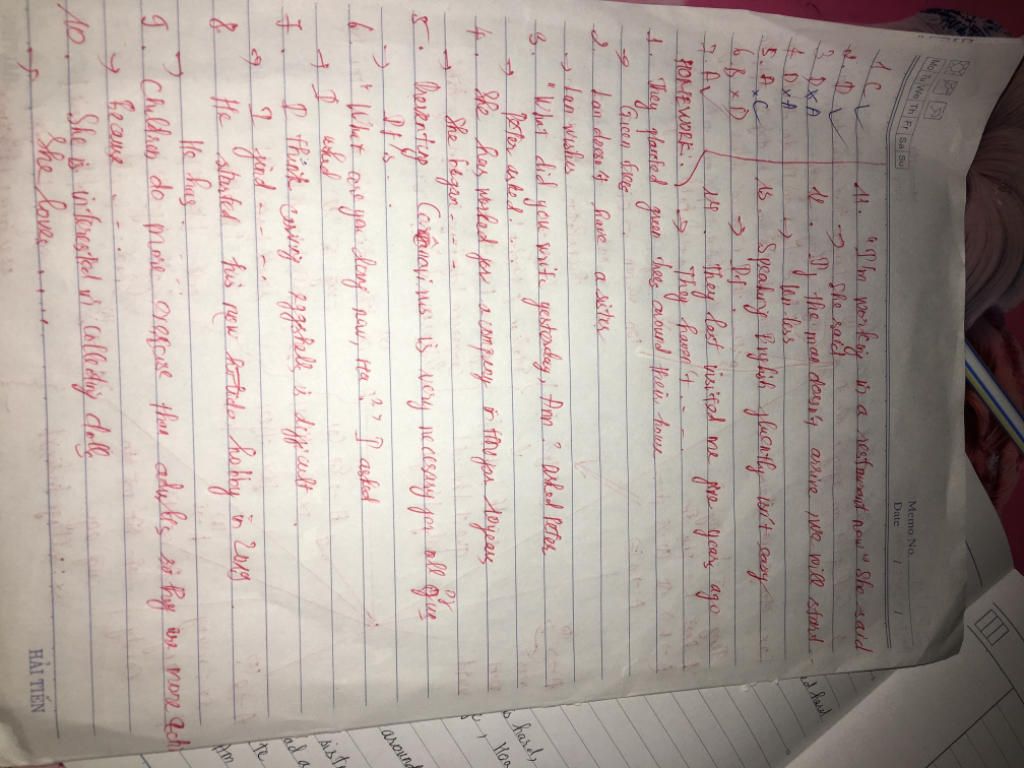 Memo No.
Date / /
Mo Tu We Th Fr Sa Su
1 C
2. D
3 D x A
4 D x A
5. A x C
6. B x D
7. A
11. "I'm working in a restaurant now" she said
→ She said
12. If the man doesn't arrive, we will stand
→ Unless
13. Speaking English fluently isn't easy
→ It
14. They last visited me five years ago
→ They haven't - - -
HOMEWORK:
1. They planted green trees around their house
→ Green trees
2. Lan doesn't have a sister
→ Lan wishes
3. "What did you write yesterday, Tom? asked Peter
→ Peter asked.
4. She has worked for a company for 10 years
→ She began - - - -
5. Learning is very necessary for all of us
→ It's
6 "What are you doing now, Ha?" I asked
→ I asked
7. I think eating vegetable is difficult
→ I find - - - -
8. He started his new hobby in 2019
→ He has
9. Children do more exercise than adults so they are more
→ Because
10. She is interested in collecting dolls
→ She loves
HẢI TIẾN